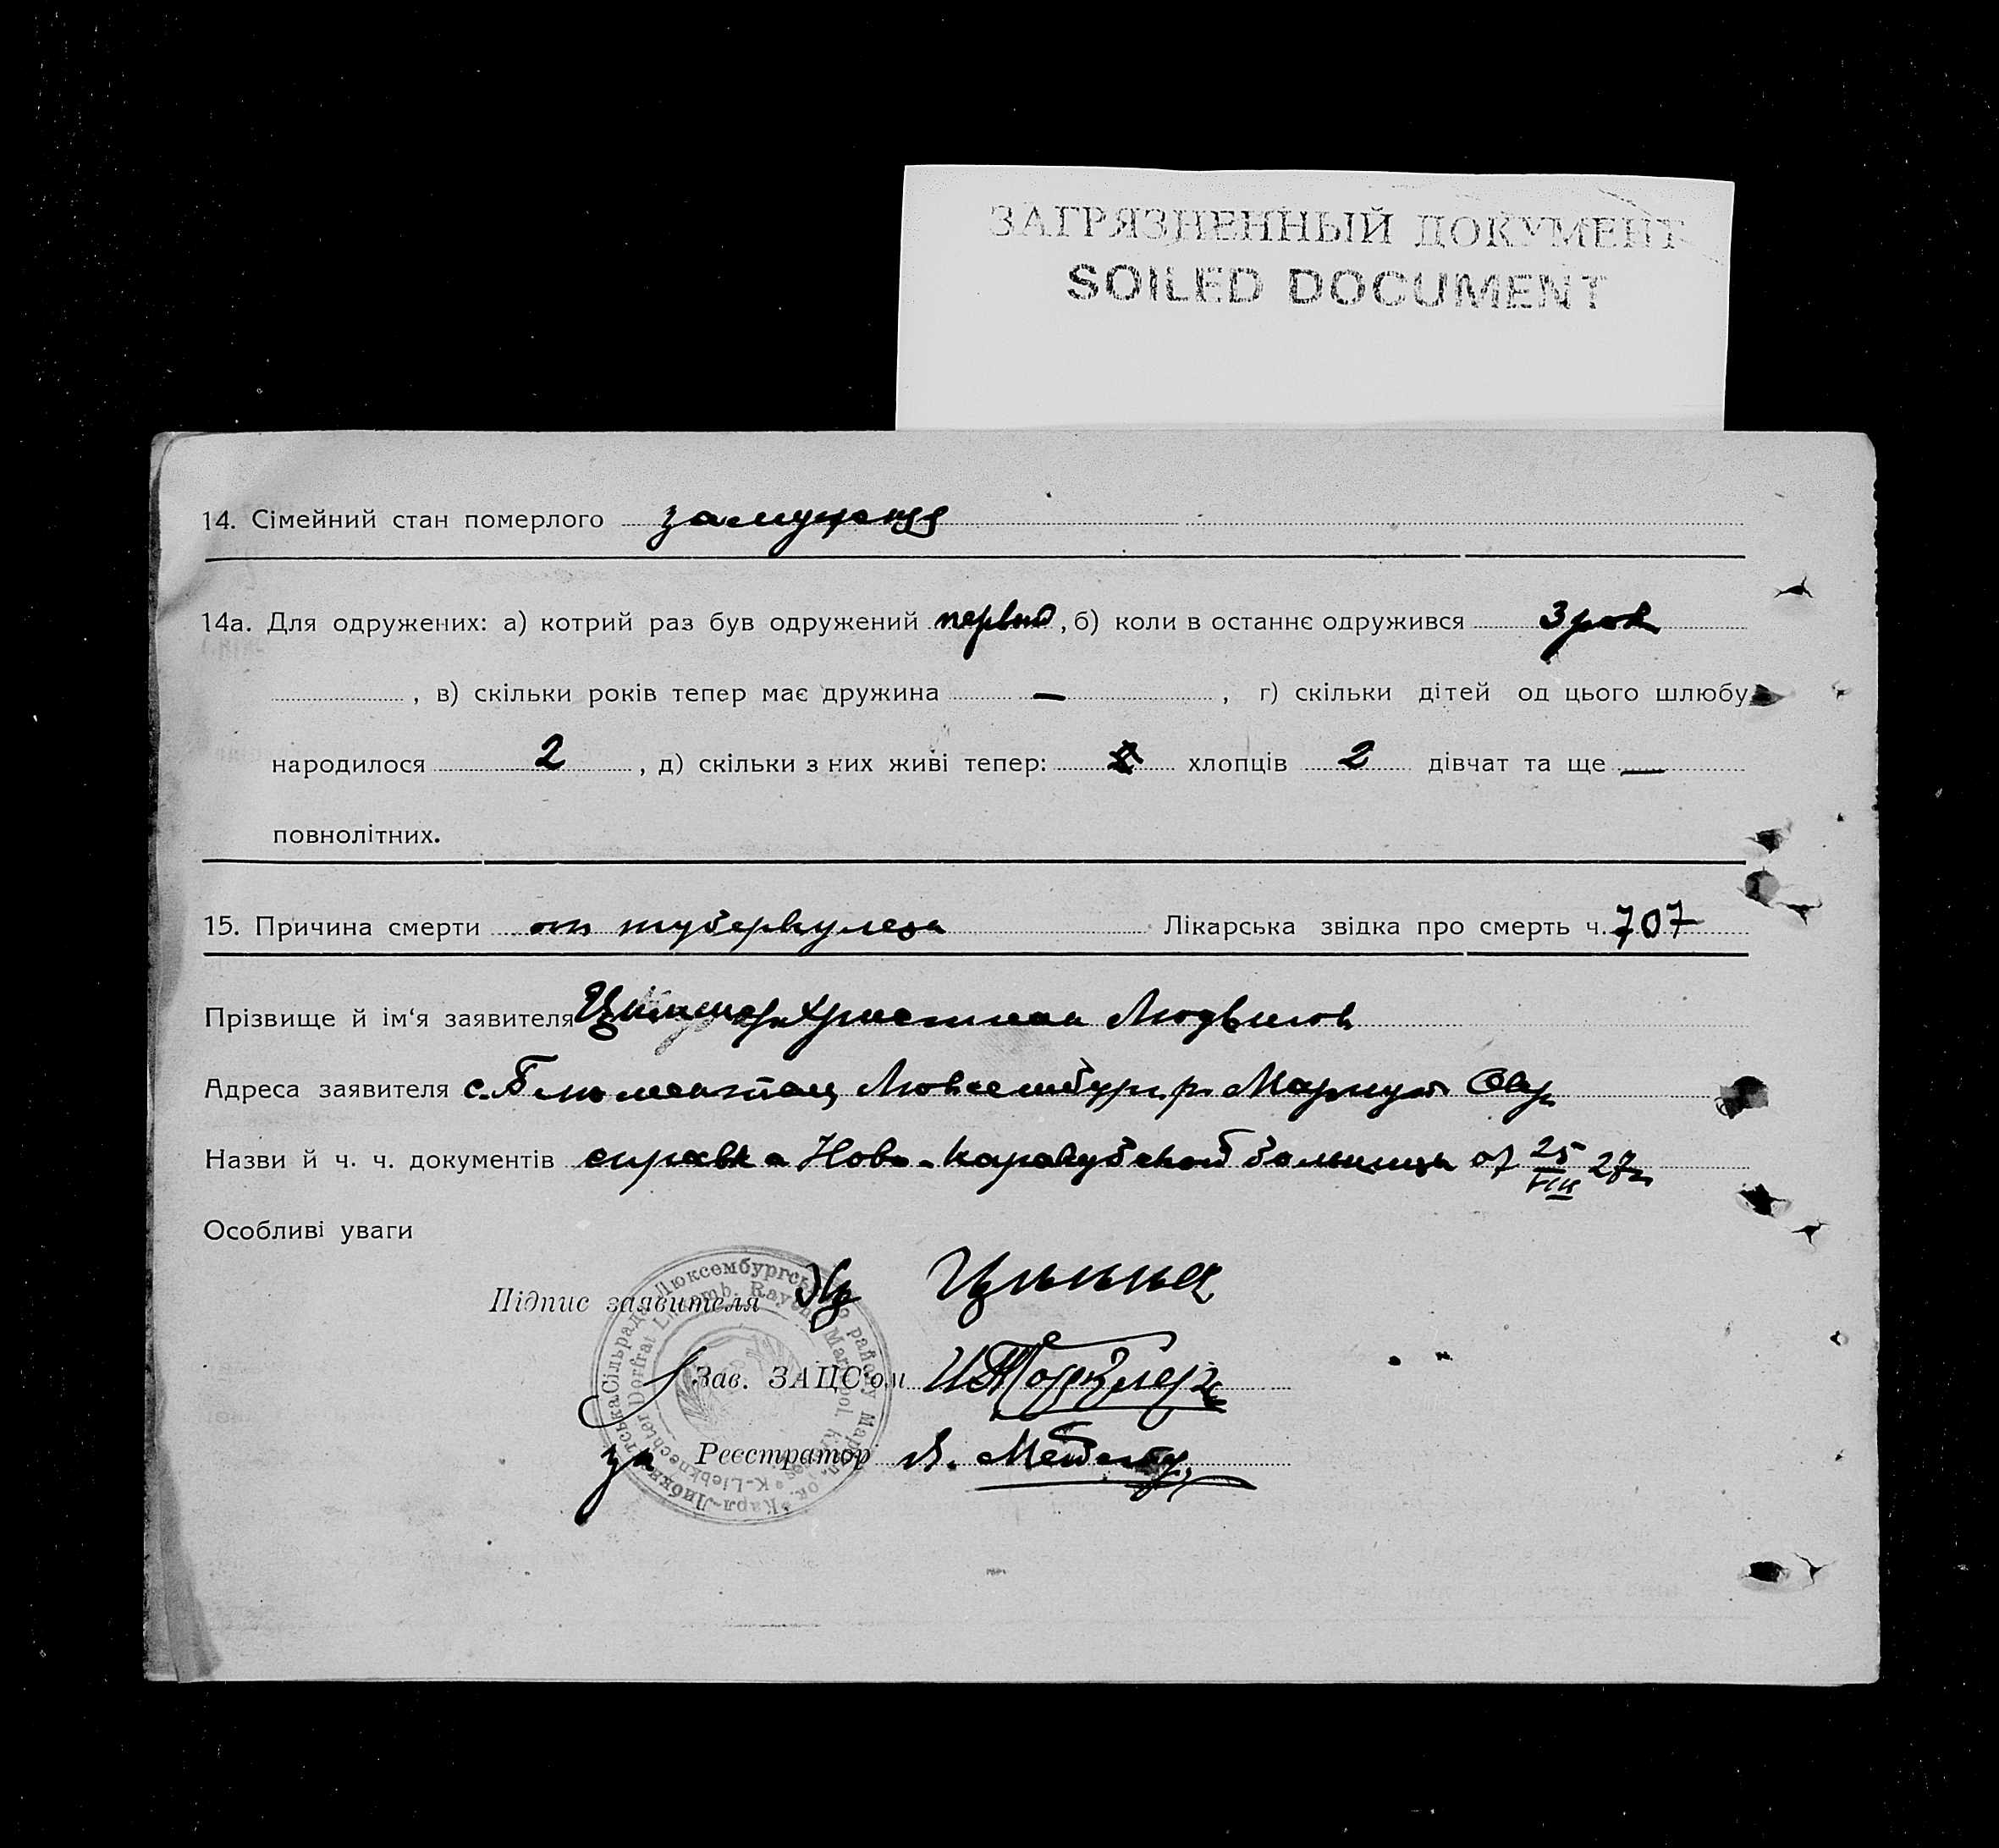 ЗАГРЯЗНЕННЫЙ ДОКУМЕНТ
SOILED DOCUMENT
14. Сімейний стан померлого замужняя
14а. Для одружених: а) котрий раз був одружений первый, б) коли в останнє одружився 3 рок
, в) скільки років тепер має дружина — , г) скільки дітей од цього шлюбу
народилося 2 , д) скільки з них живі тепер: хлопців 2 дівчат та ще —
повнолітних.
15. Причина смерти от туберкулеза Лікарська звідка про смерть ч. 707
Прізвище й ім‘я заявителя Христиан Людвигов
Адреса заявителя с. Люксембург. р. Мариуп. Окр.
Назви й ч. ч. документів справка Ново-Каракубской больницы от 25/VIII 27г.
Особливі уваги
Підпис заявителя
Зав. ЗАЦС‘ом
за Реєстратор
Карл-Лібкнехтська Сільрада Люксембургського району Маріюп. ок.
K-Liebknechter Dorfrat Luxemb. Rayon Mariupol. kreises